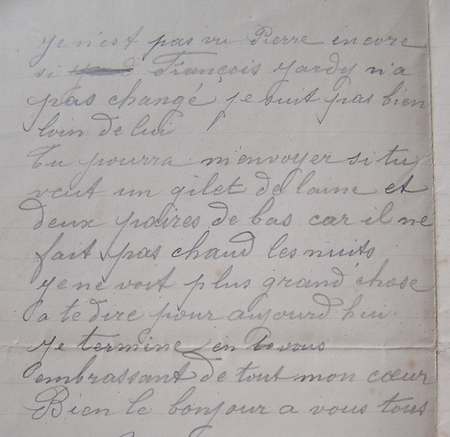 je n'est pas vu Pierre encore
si François Jardy n'a
pas changé je suit pas bien
loin de lui !
Tu pourra m'envoyer si tu
veut un gilet de laine et
deux paires de bas car il ne
fait pas chaud les nuits
je ne voit plus grand'chose
a te dire pour aujourd'hui.
je termine en vous
embrassant de tout mon cœur
Bien le bonjour a vous tous